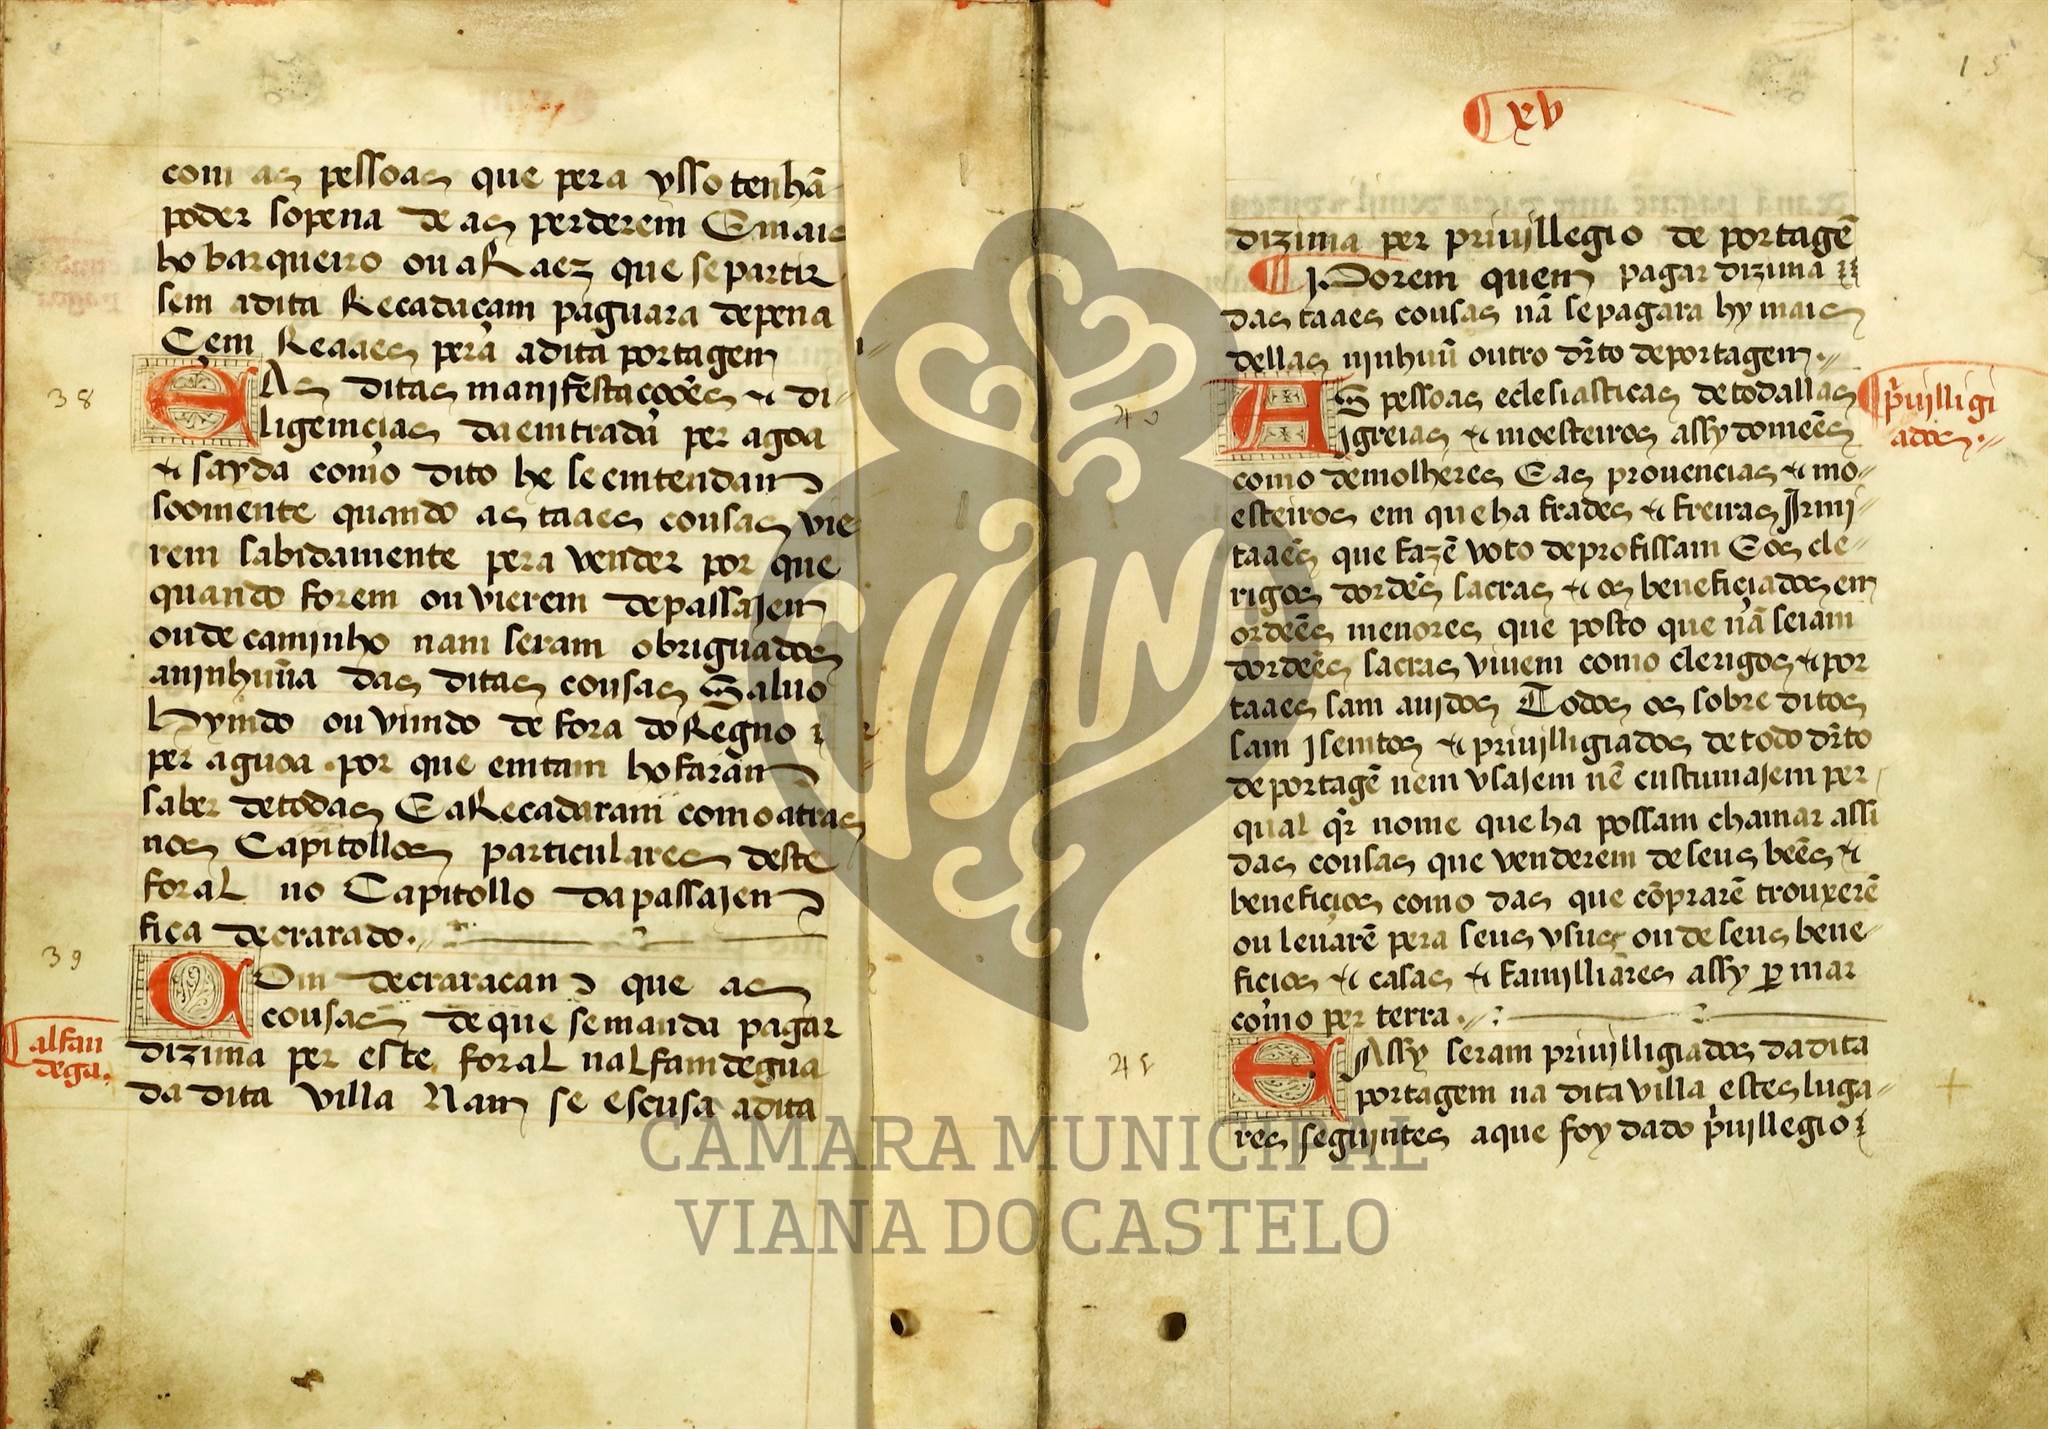 com as pessoas que pera ysso tenhã
poder sopena de as perderem E mais
ho barqueiro ou aRaez que se partir
sem adita Recadaçam paguara depena
Çem Reaaes pera adita portagem
38
EAs ditas manifestaçoões ⁊ di-
ligemçias da emtrada per agoa
⁊ sayda como dito he se emtendam
soomente quando as taaes cousas vie
rem sabidamente pera vender por que
quando forem ou vierem de passajem
ou de caminho nam seram obriguados
aninhuũa das ditas cousas Saluo
Hyindo ou vimdo de fora do Regno
per aguoa por que emtam ho faram
saber de todas E aRecadaram como atras
nos Capitollos particulares deste
foral no Capitollo da passajem
fica decrarado.
39
COm decraraçam que as
cousas de que se manda pagar
alfan
dega.
dizima per este foral nalfamdegua
da dita villa Nam se escusa adita
15
xv
dizima per priuillegio de portagẽ
Porem quem pagar dizima
das taaes cousas nã se pagara hy mais
dellas ninhuũ outro dr̃to de portagem.
40
AS pessoas eclesiasticas de todallas
priuilligi
ados.
Igreias ⁊ moesteiros assy domeẽs
como de molheres E as prouencias ⁊ mo-
esteiros em que ha frades ⁊ freiras Irmi-
taaẽs que fazẽ voto de profissam E os cle-
rigos dordẽs sacras ⁊ os beneficiados em
ordeẽs menores que posto que nã seiam
dordeẽs sacras viuem como clerigos ⁊ por
taaes sam auidos Todos os sobre ditos
sam isemtos ⁊ priuilligiados de todo dr̃to
de portagẽ nem vsajem nẽ custumajem per
qual qr̃ nome que ha possam chamar assi
das cousas que venderem de seus beẽs ⁊
beneficios como das que cõprarẽ trouxerẽ
ou leuarẽ pera seus vsus ou de seus bene-
ficios ⁊ casas ⁊ familliares assy ꝑ mar
como per terra.
41
EAssy seram priuilligiados da dita
portagem na dita villa estes luga-
res seguintes aque foy dado p̃uillegio
CÂMARA MUNICIPAL
VIANA DO CASTELO